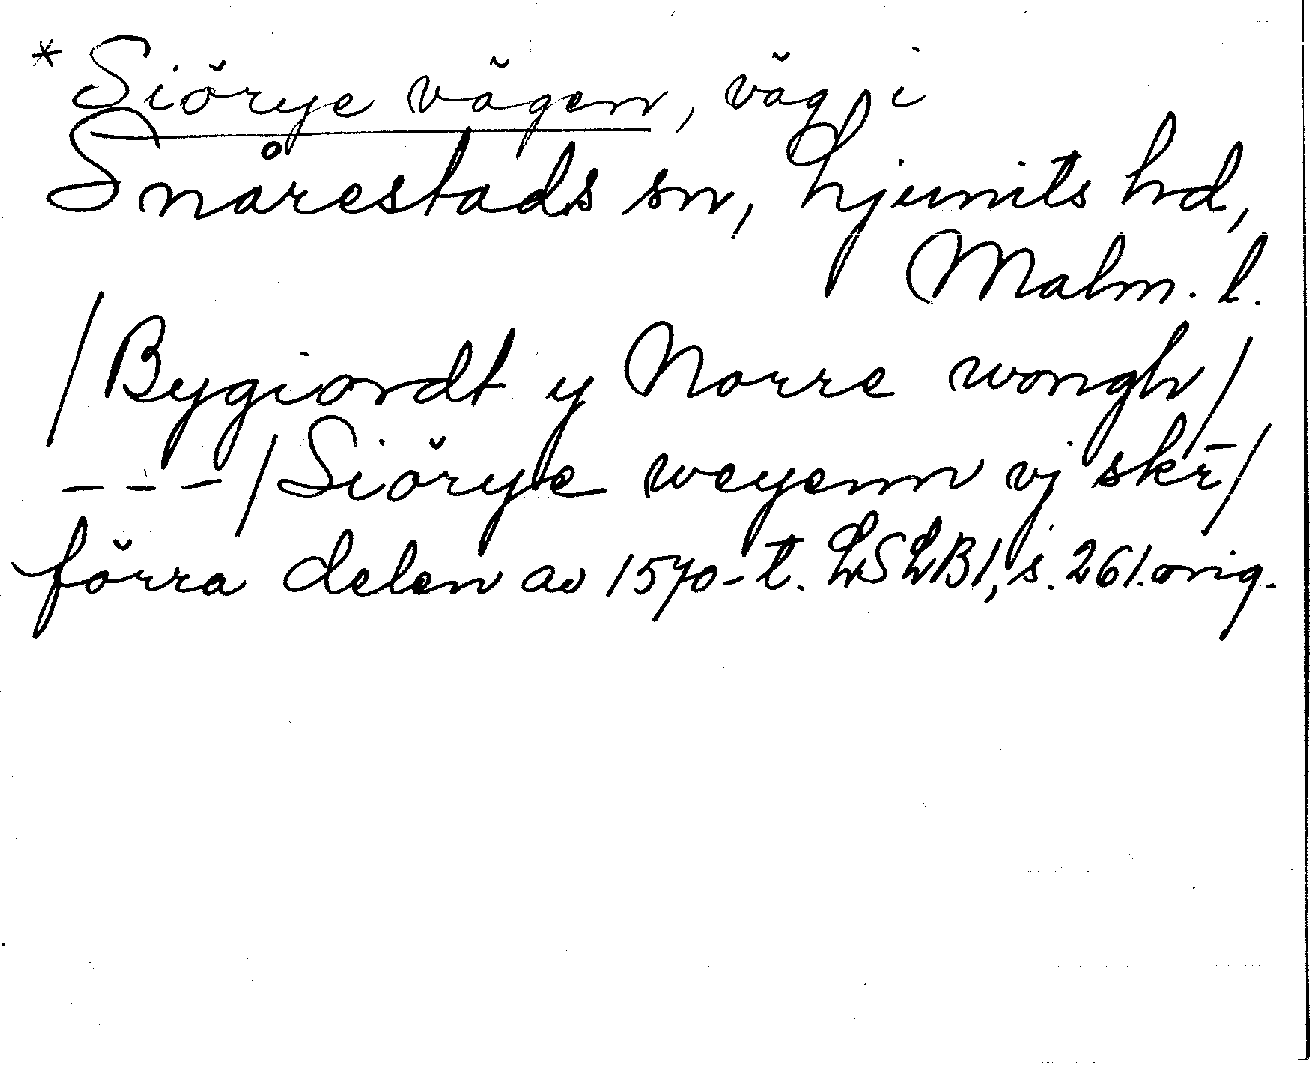 *Siörye vägen, väg i
Snårestads sn, Ljunits hd,
Malm. l.
/Bygiordt y Norre wongh/
---/Siörye weyenn vj skr̄/
förra delen av 1570-t. LSLB1, s. 261. orig.